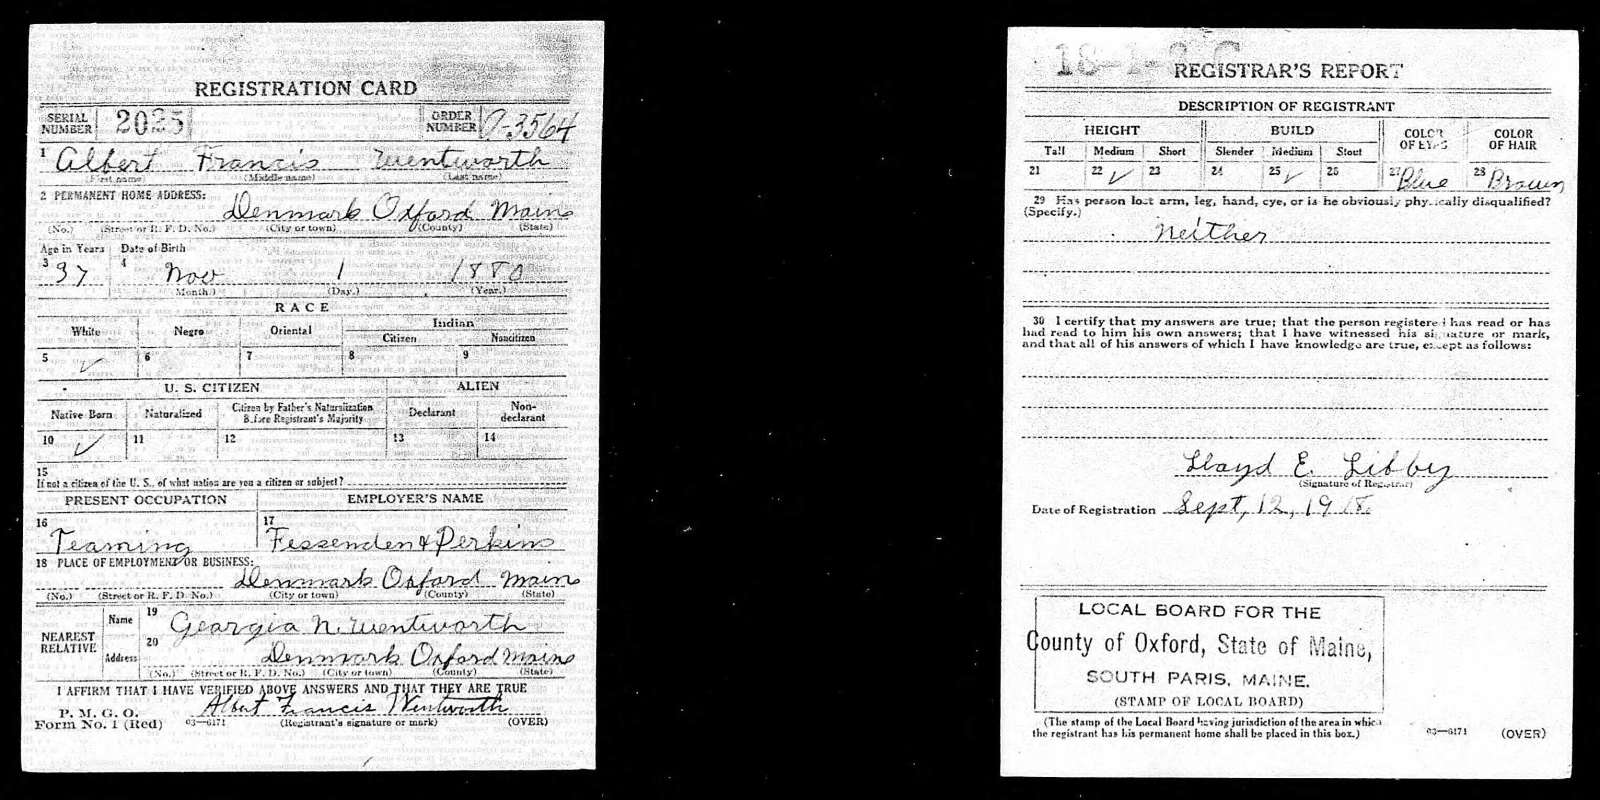 REGISTRATION CARD
SERIAL NUMBER 2025 ORDER NUMBER A-3564
1 Albert Francis Wentworth
(First name) (Middle name) (Last name)
2 PERMANENT HOME ADDRESS:
Denmark Oxford Maine
(No.) (Street or R. F. D. No.) (City or town) (County) (State)
Age in Years Date of Birth
3 37 4 Nov 1 1880
(Month.) (Day.) (Year.)
RACE
White Negro Oriental Indian
Citizen Noncitizen
5 ✓ 6 7 8 9
U. S. CITIZEN ALIEN
Native Born Naturalized Citizen by Father's Naturalization Before Registrant's Majority Declarant Non-declarant
10 ✓ 11 12 13 14
15
If not a citizen of the U. S., of what nation are you a citizen or subject?
PRESENT OCCUPATION EMPLOYER'S NAME
16 Teaming 17 Fessenden & Perkins
18 PLACE OF EMPLOYMENT OR BUSINESS:
Denmark Oxford Maine
(No.) (Street or R. F. D. No.) (City or town) (County) (State)
NEAREST RELATIVE Name 19 Georgia N. Wentworth
Address 20 Denmark Oxford Maine
(No.) (Street or R. F. D. No.) (City or town) (County) (State)
I AFFIRM THAT I HAVE VERIFIED ABOVE ANSWERS AND THAT THEY ARE TRUE
Albert Francis Wentworth
P. M. G. O.
Form No. 1 (Red) 03—6171 (Registrant's signature or mark) (OVER)
REGISTRAR'S REPORT
DESCRIPTION OF REGISTRANT
HEIGHT BUILD COLOR OF EYES COLOR OF HAIR
Tall Medium Short Slender Medium Stout
21 22 ✓ 23 24 25 ✓ 26 27 Blue 28 Brown
29 Has person lost arm, leg, hand, eye, or is he obviously physically disqualified?
(Specify.)
Neither
30 I certify that my answers are true; that the person registered has read or has
had read to him his own answers; that I have witnessed his signature or mark,
and that all of his answers of which I have knowledge are true, except as follows:
Lloyd E. Libby
(Signature of Registrar)
Date of Registration Sept, 12, 1918.
LOCAL BOARD FOR THE
County of Oxford, State of Maine,
SOUTH PARIS, MAINE.
(STAMP OF LOCAL BOARD)
(The stamp of the Local Board having jurisdiction of the area in which
the registrant has his permanent home shall be placed in this box.)
03—6171 (OVER)